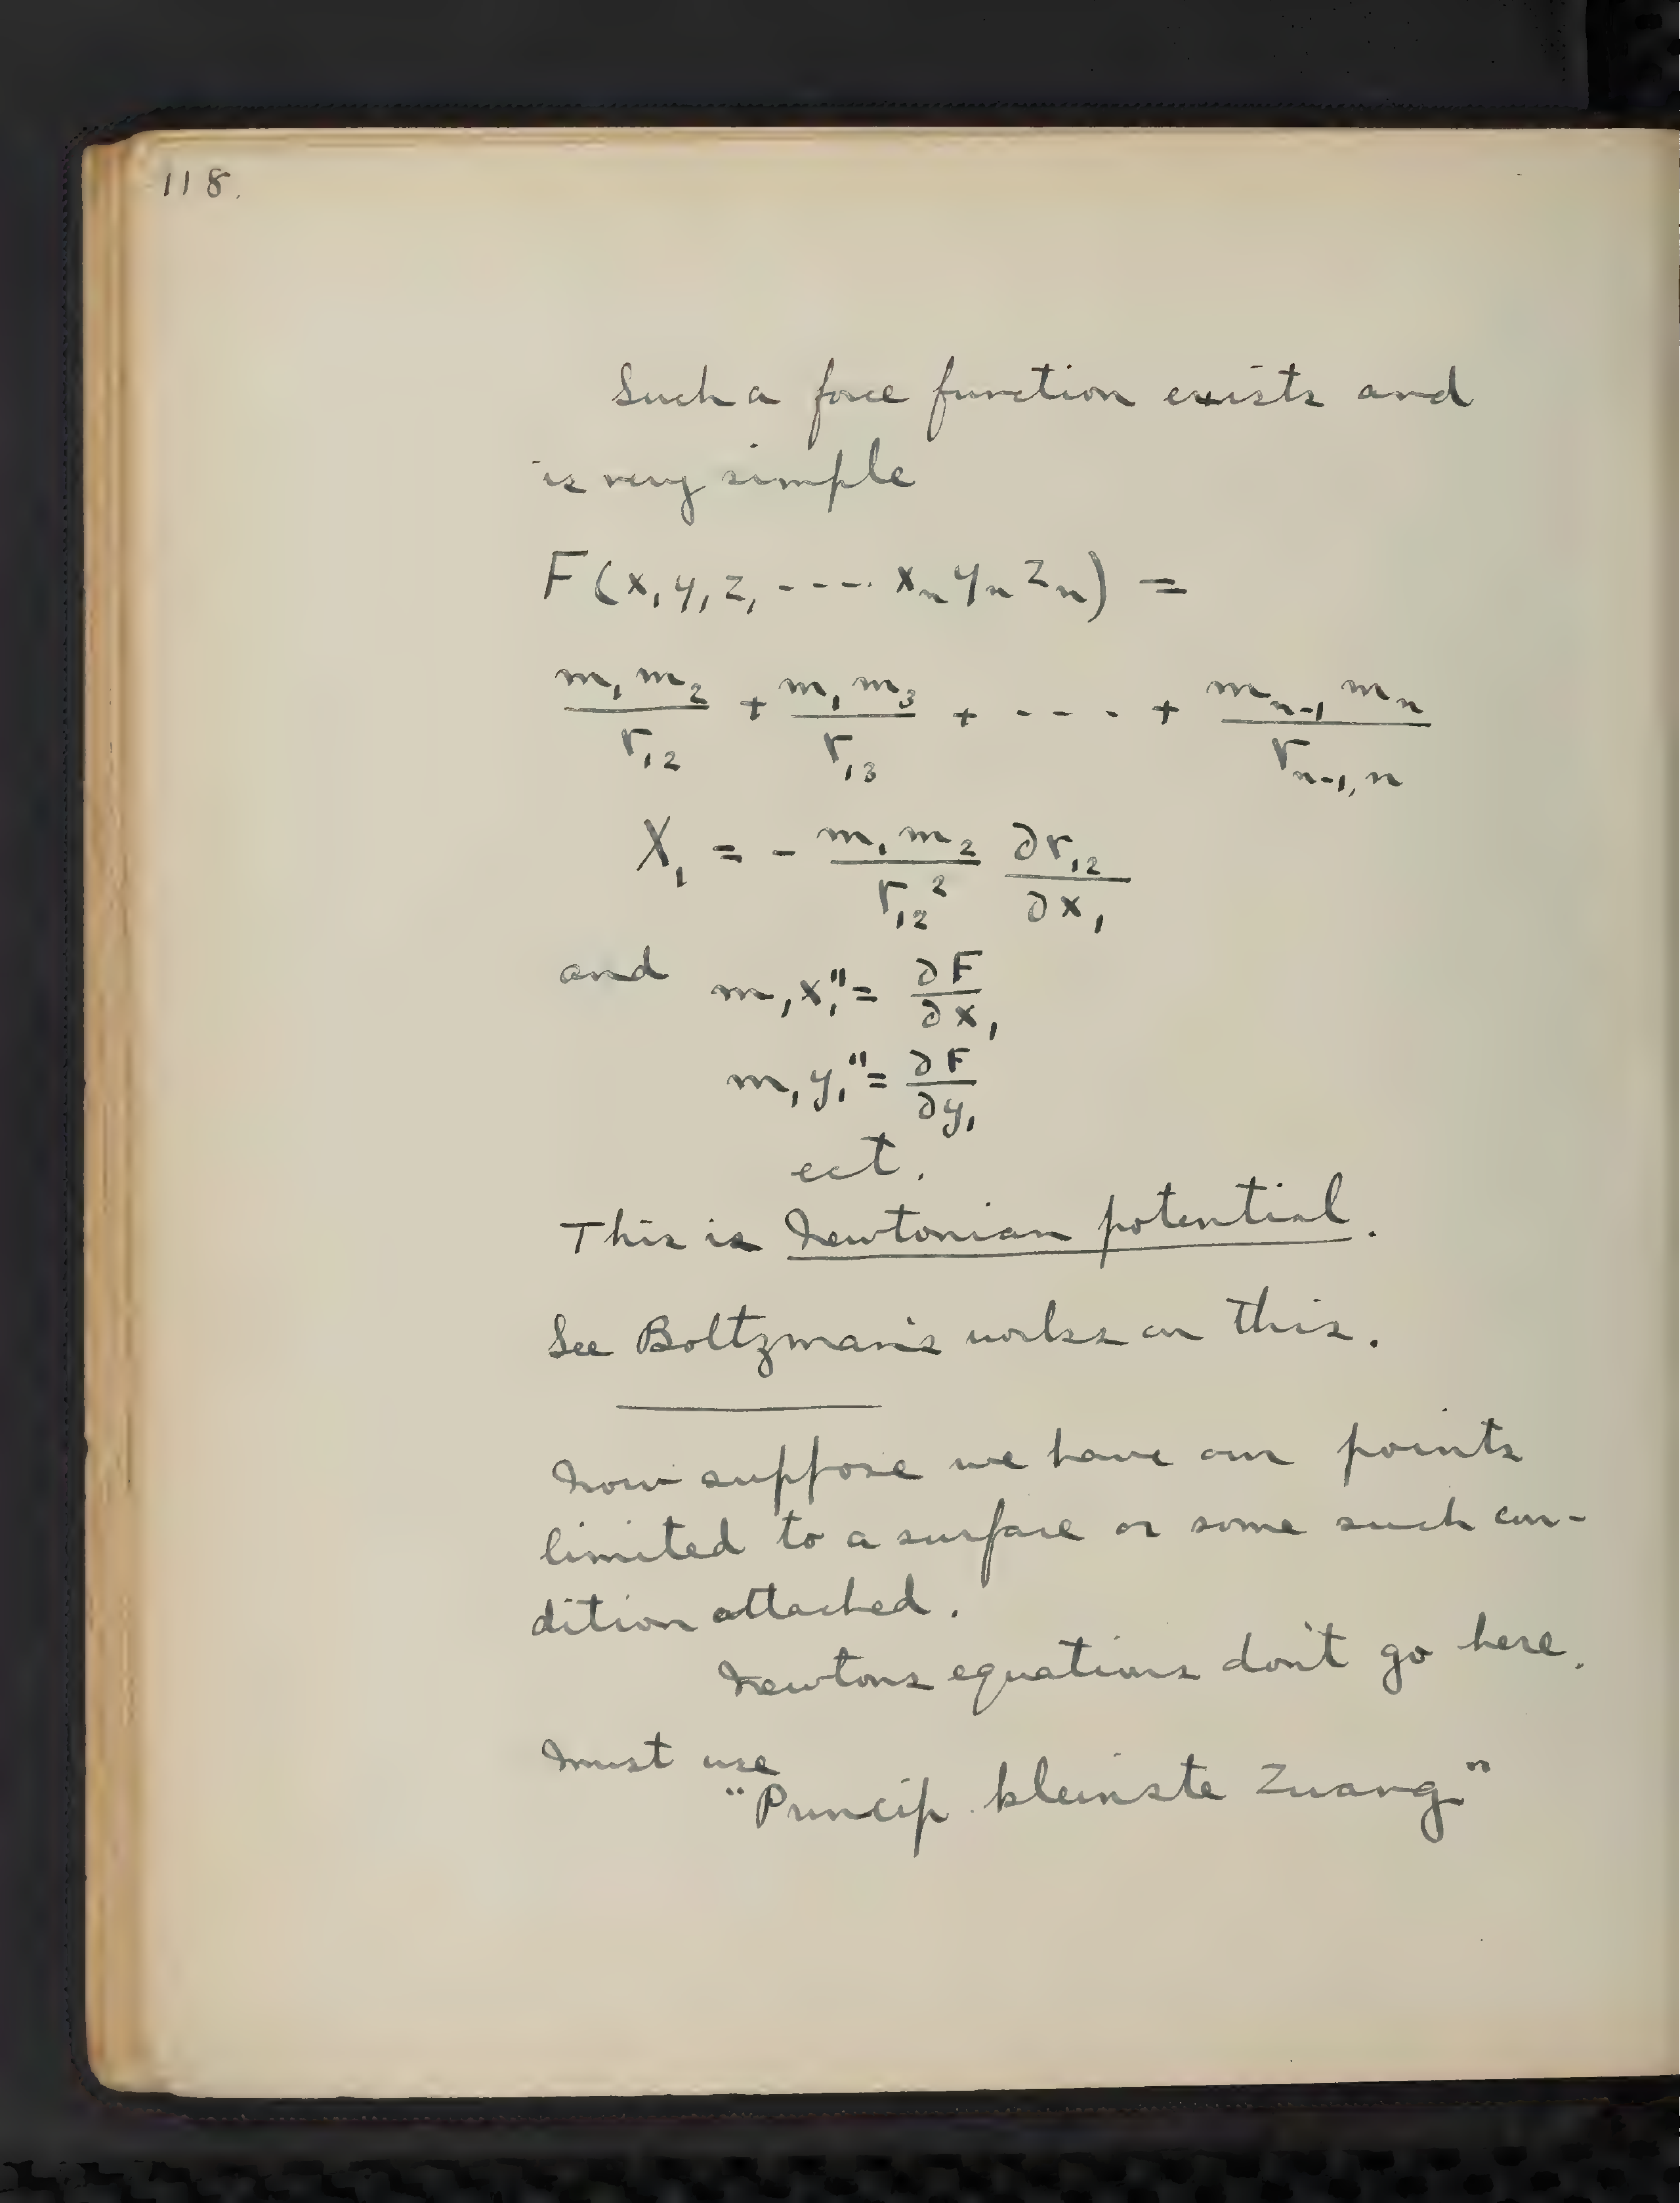 118.
Such a force function exists and
is very simple
F(x₁ y₁ z₁ ---- xₙ yₙ zₙ) =
m₁m₂/r₁₂ + m₁m₃/r₁₃ + - - - + mₙ₋₁mₙ/rₙ₋₁,ₙ
X₁ = - m₁m₂/r₁₂² ∂r₁₂/∂x₁
and m₁x₁″ = ∂F/∂x₁
m₁y₁″ = ∂F/∂y₁
ect.
This is Newtonian potential.
See Boltzman's works on this.
Now suppose we have our points
limited to a surface or some such con-
dition attached.
Newtons equations don't go here.
Must use
"Princip kleinste Zwang"